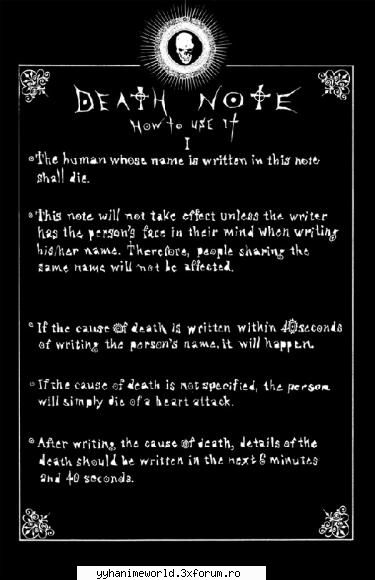 DEATH NOTE
HOW TO USE IT
I
The human whose name is written in this note
shall die.
This note will not take effect unless the writer
has the person's face in their mind when writing
his/her name. Therefore, people sharing the
same name will not be affected.
If the cause of death is written within 40 seconds
of writing the person's name, it will happen.
If the cause of death is not specified, the person
will simply die of a heart attack.
After writing the cause of death, details of the
death should be written in the next 6 minutes
and 40 seconds.
yyhanimeworld.3xforum.ro